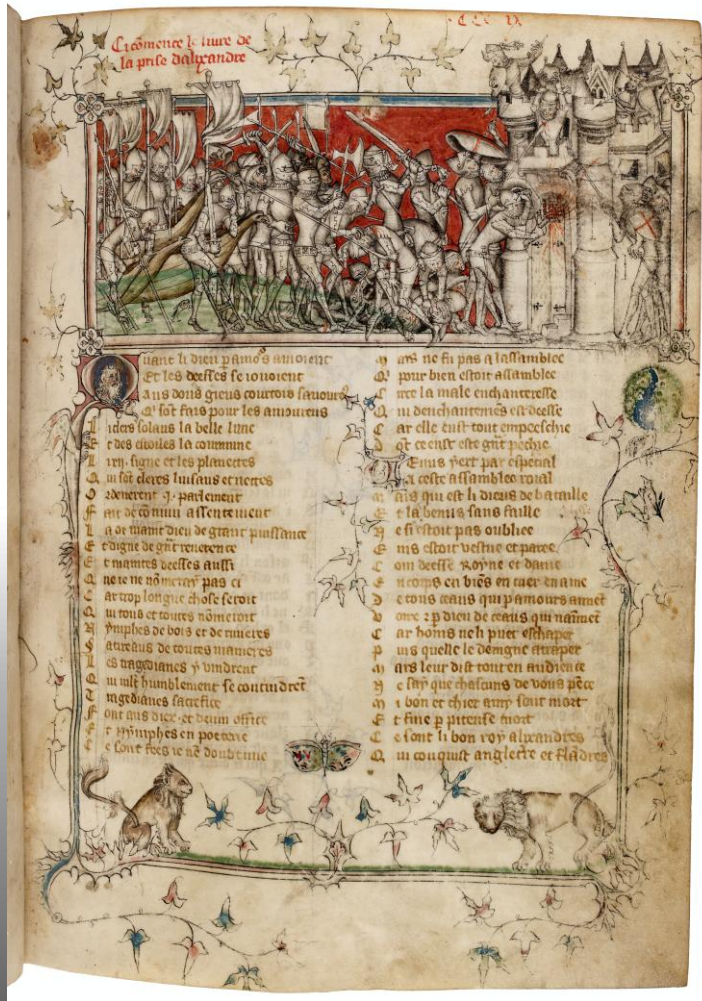 Ci cōmence le liure de
la prise dalixandre
Quant li dieu p amōs amoient
Et les deesses se iouoient
Aus dous gieus courtois sauourꝰ
Qui sōt fais pour les amoureus
Li clers solaus la belle lune
Et des estoiles la commune
Li xij. signe et les planettes
Qui sōt cleres luisans et nettes
Ordenerent .j. parlement
Fait de cōmun assentement
La ot maint dieu de grant puissance
Et digne de grāt reuerence
Et maintes deesses aussi
Que ie ne nōmeray pas ci
Car trop longue chose seroit
Qui tous et toutes nōmeroit
Nymphes de bois et de riuieres
Satireaus de toutes manieres
Les tragedianes y vindrent
Qui mlt humblement se contindrēt
Tragedianes sacrefice
Font aus diex. et deuin office
Et Nymphes en poeterie
Ce sont fees ie nē doubt mie
Mars ne fu pas a lassamblee
Qui pour bien estoit assamblee
Circe la male enchanteresse
Qui denchantemēs est deesse
Car elle eust tout empeeschie
Dōt ce eust este grāt pechie
Venus yert par especial
En ceste assamblee roial
Mais qui est li dieus de bataille
Et la venus sans faille
Ne si estoit pas oubliee
Eins estoit vestue et paree
Com deesse Royne et dame
En corps en biēs en cuer en ame
De tous ceaus qui p amours aimēt
Voire ⁊ p dieu de ceaus qui naimēt
Car homs ne li puet eschaper
Puis quelle le deingne atraper
Mars leur dist tout en audience
Ne say que chascuns de vous pēce
Mi bon et chier amy sont mort
Et fine p piteuse mort
Ce sont li bon roy alixandres
Qui conquist angleterre et flādres